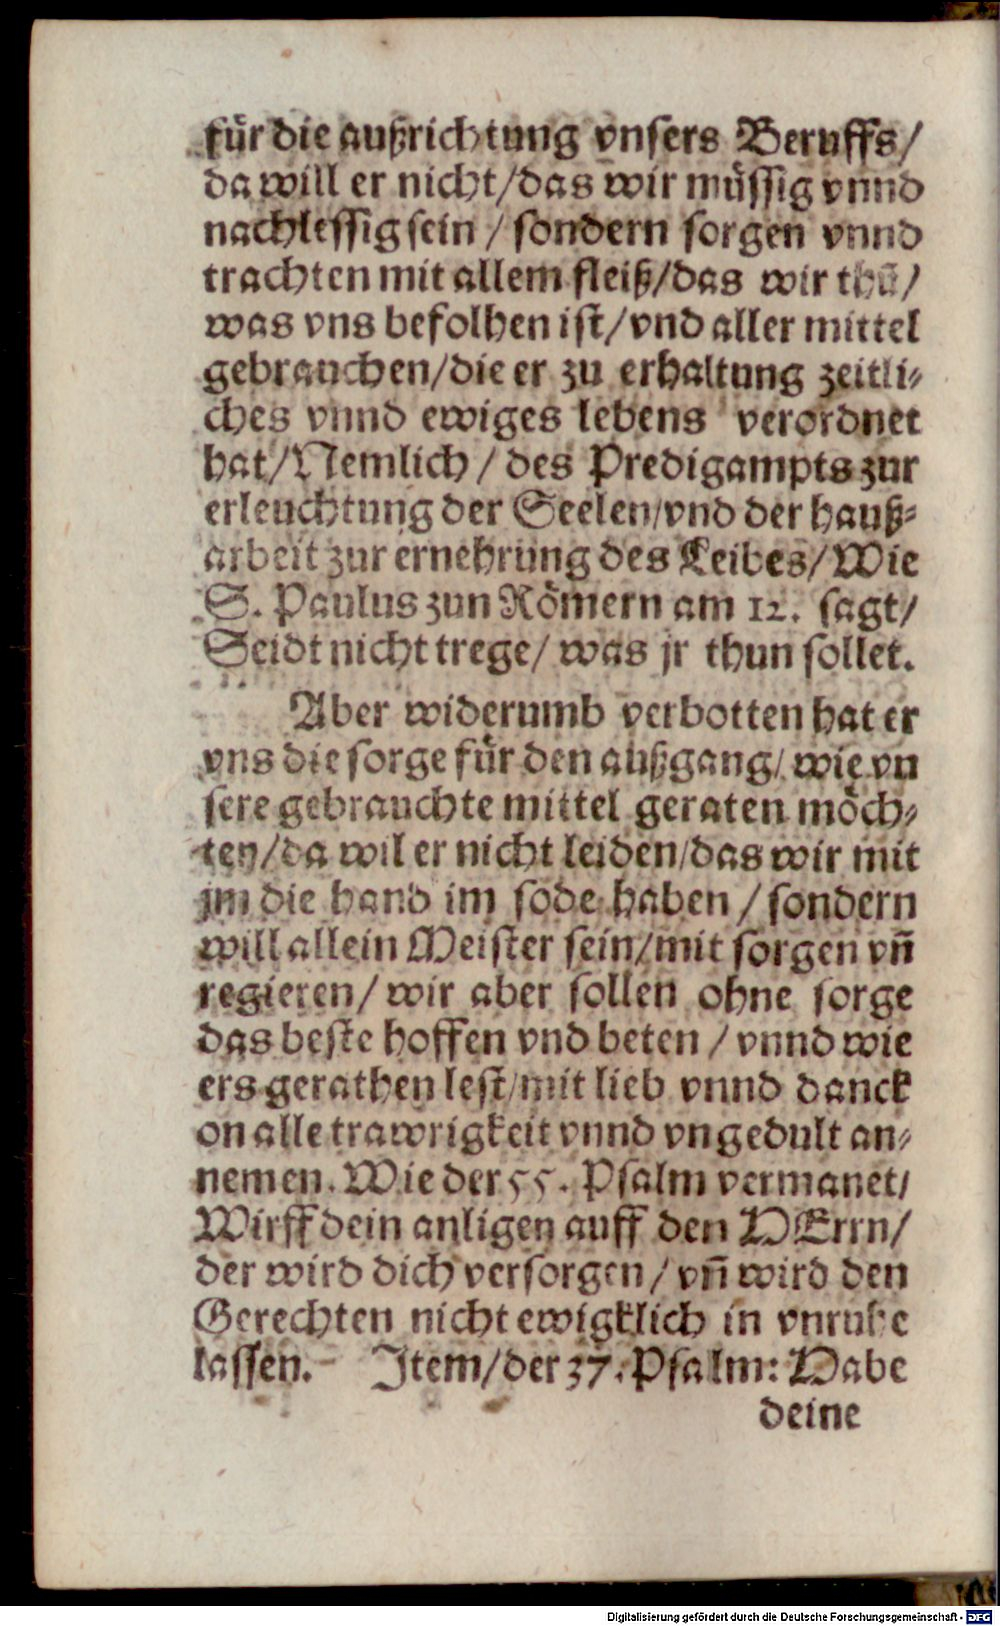 für die außrichtung vnsers Beruffs/
da will er nicht/das wir müssig vnnd
nachlessig sein / sondern sorgen vnnd
trachten mit allem fleiß/das wir thū/
was vns befolhen ist/vnd aller mittel
gebrauchen/die er zu erhaltung zeitli-
ches vnnd ewiges lebens verordnet
hat/Nemlich / des Predigampts zur
erleuchtung der Seelen/vnd der hauß-
arbeit zur ernehrung des Leibes/Wie
S. Paulus zun Römern am 12. sagt/
Seidt nicht trege/ was jr thun sollet.
Aber widerumb verbotten hat er
vns die sorge für den außgang/ wie vn
sere gebrauchte mittel geraten möch-
ten/da wil er nicht leiden/das wir mit
jm die hand im sode haben / sondern
will allein Meister sein/mit sorgen vñ
regieren/ wir aber sollen ohne sorge
das beste hoffen vnd beten / vnnd wie
ers gerathen lest/mit lieb vnnd danck
on alle trawrigkeit vnnd vngedult an-
nemen. Wie der 55. Psalm vermanet/
Wirff dein anligen auff den HErrn/
der wird dich versorgen / vñ wird den
Gerechten nicht ewigklich in vnruhe
lassen. Item/der 37. Psalm: Habe
deine
Digitalisierung gefördert durch die Deutsche Forschungsgemeinschaft - DFG